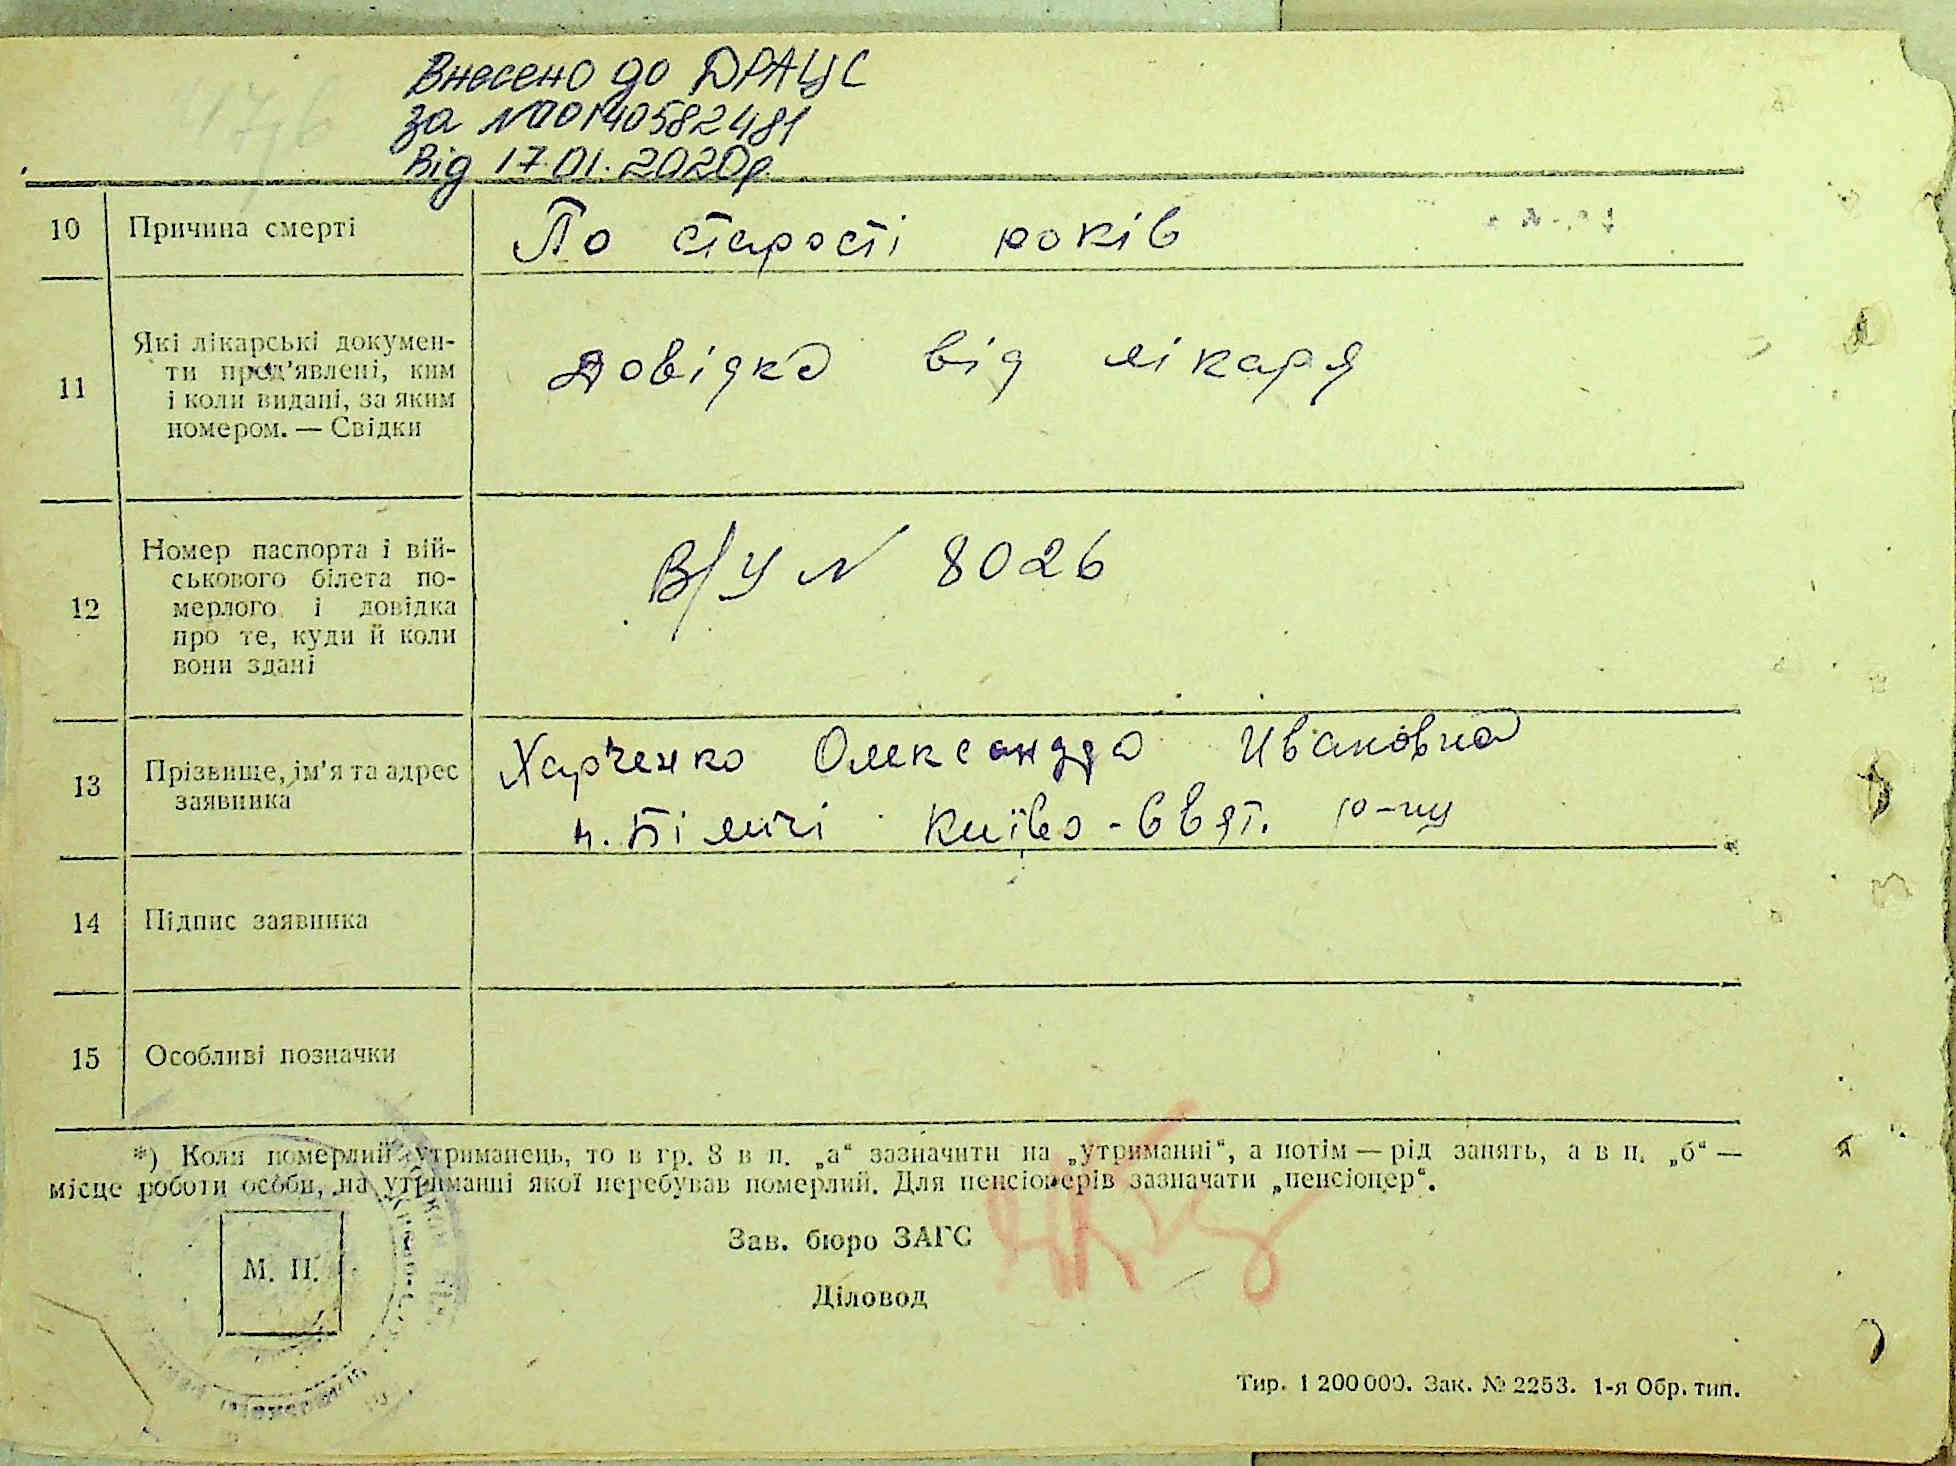 Внесено до ДРАЦС
за №00140582481
Від 17.01.2020р.
10 Причина смерті По старості років
11 Які лікарські докумен-
ти пред'явлені, ким
і коли видані, за яким
номером. — Свідки
довідка від лікаря
12 Номер паспорта і вій-
ськового білета по-
мерлого і довідка
про те, куди й коли
вони здані
В/У № 8026
13 Прізвище, ім'я та адрес
заявника
Харченко Олександра Ивановна
Біличі Київо-Свят. р-ну
14 Підпис заявника
15 Особливі позначки
*) Коли померлий утриманець, то в гр. 8 в п. „а“ зазначити на „утриманні“, а потім — рід занять, а в п. „б“ —
місце роботи особи, на утриманні якої перебував померлий. Для пенсіонерів зазначати „пенсіонер“.
М. П.
Зав. бюро ЗАГС
Діловод
Тир. 1 200 000. Зак. № 2253. 1-я Обр. тип.